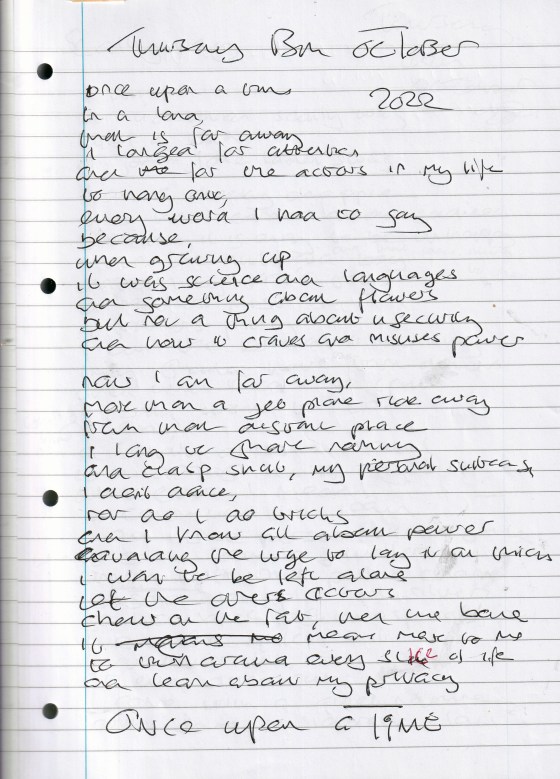 Thursday 13th October
2022
once upon a time
in a land,
that is far away
I longed for attention
and for the actors in my life
to hang onto,
every word I had to say
because,
when growing up
it was science and languages
and something about flowers
but not a thing about insecurity
and how it craves and misuses power
now I am far away,
more than a jet plane ride away
from that distant place
I long to share nothing
and clasp shut, my personal suitcase,
I don't dance,
nor do I do tricks
and I know all about power
avoiding the urge to lay it on thick
I want to be left alone
let the others actors
chew on the fat, then the bone
it means more to me
to turn around every slice of life
and learn about my privacy
Once upon a TIME